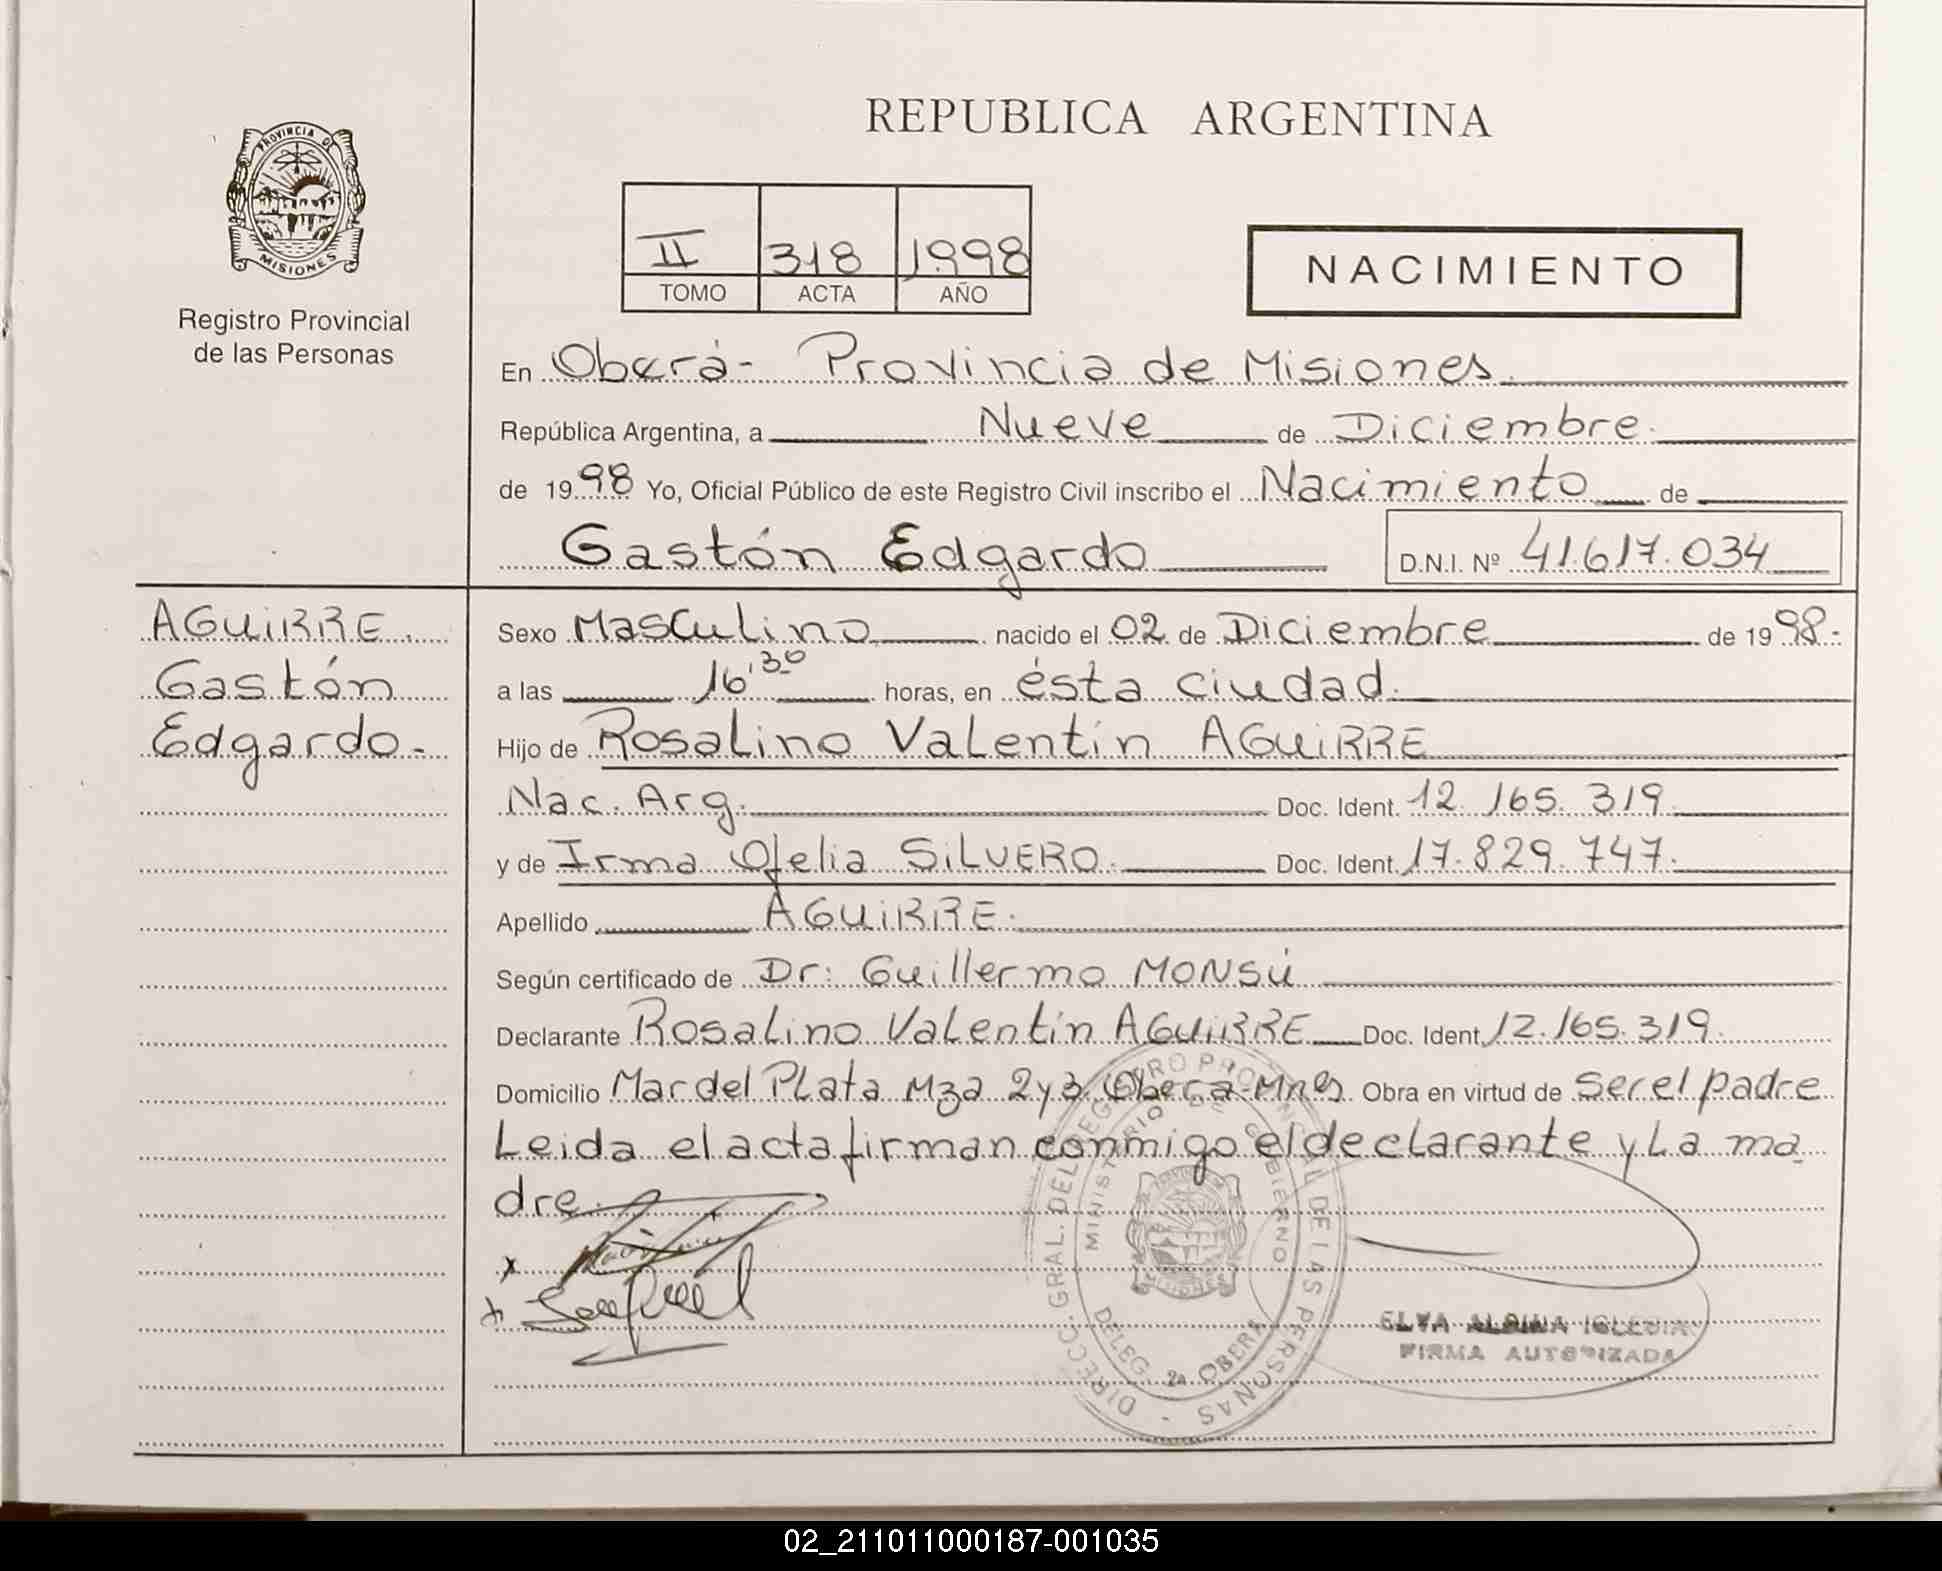 REPUBLICA ARGENTINA
PROVINCIA DE
MISIONES
Registro Provincial
de las Personas
II 318 1998
TOMO ACTA AÑO
NACIMIENTO
En Oberá - Provincia de Misiones.
República Argentina, a Nueve de Diciembre.
de 1998 Yo, Oficial Público de este Registro Civil inscribo el Nacimiento de
Gastón Edgardo D.N.I. Nº 41.617.034
AGUiRRE.
Gastón
Edgardo.-
Sexo Masculino nacido el 02 de Diciembre de 1998.-
a las 16'30 horas, en ésta ciudad.
Hijo de Rosalino Valentín AGUiRRE
Nac. Arg. Doc. Ident. 12.165.319.
y de Irma Ofelia SiLVERO. Doc. Ident. 17.829.747.
Apellido AGUiRRE.
Según certificado de Dr: Guillermo MONSÚ
Declarante Rosalino Valentín AGUiRRE Doc. Ident. 12.165.319.
Domicilio Mar del Plata Mza 2 y 3 Oberá-Mnes. Obra en virtud de Ser el padre
Leida el acta firman conmigo el declarante y La ma
dre.
x
x
DIRECC. GRAL. DEL REGISTRO PROVINCIAL DE LAS PERSONAS -
MINISTERIO DE GOBIERNO
DELEG. 2a OBERA
ELVA ALBINA IGLESIA
FIRMA AUTORIZADA
02_211011000187-001035